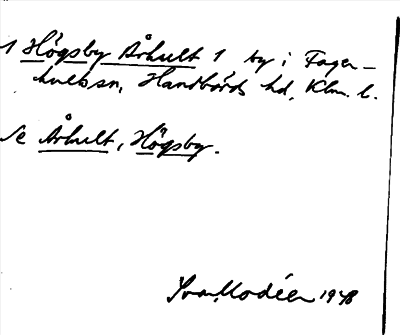 1 Högsby Århult 1 by i Fager-
hults sn, Handbörds hd, Klm. l.
Se Århult, Högsby.
Ivar Modéer 1948